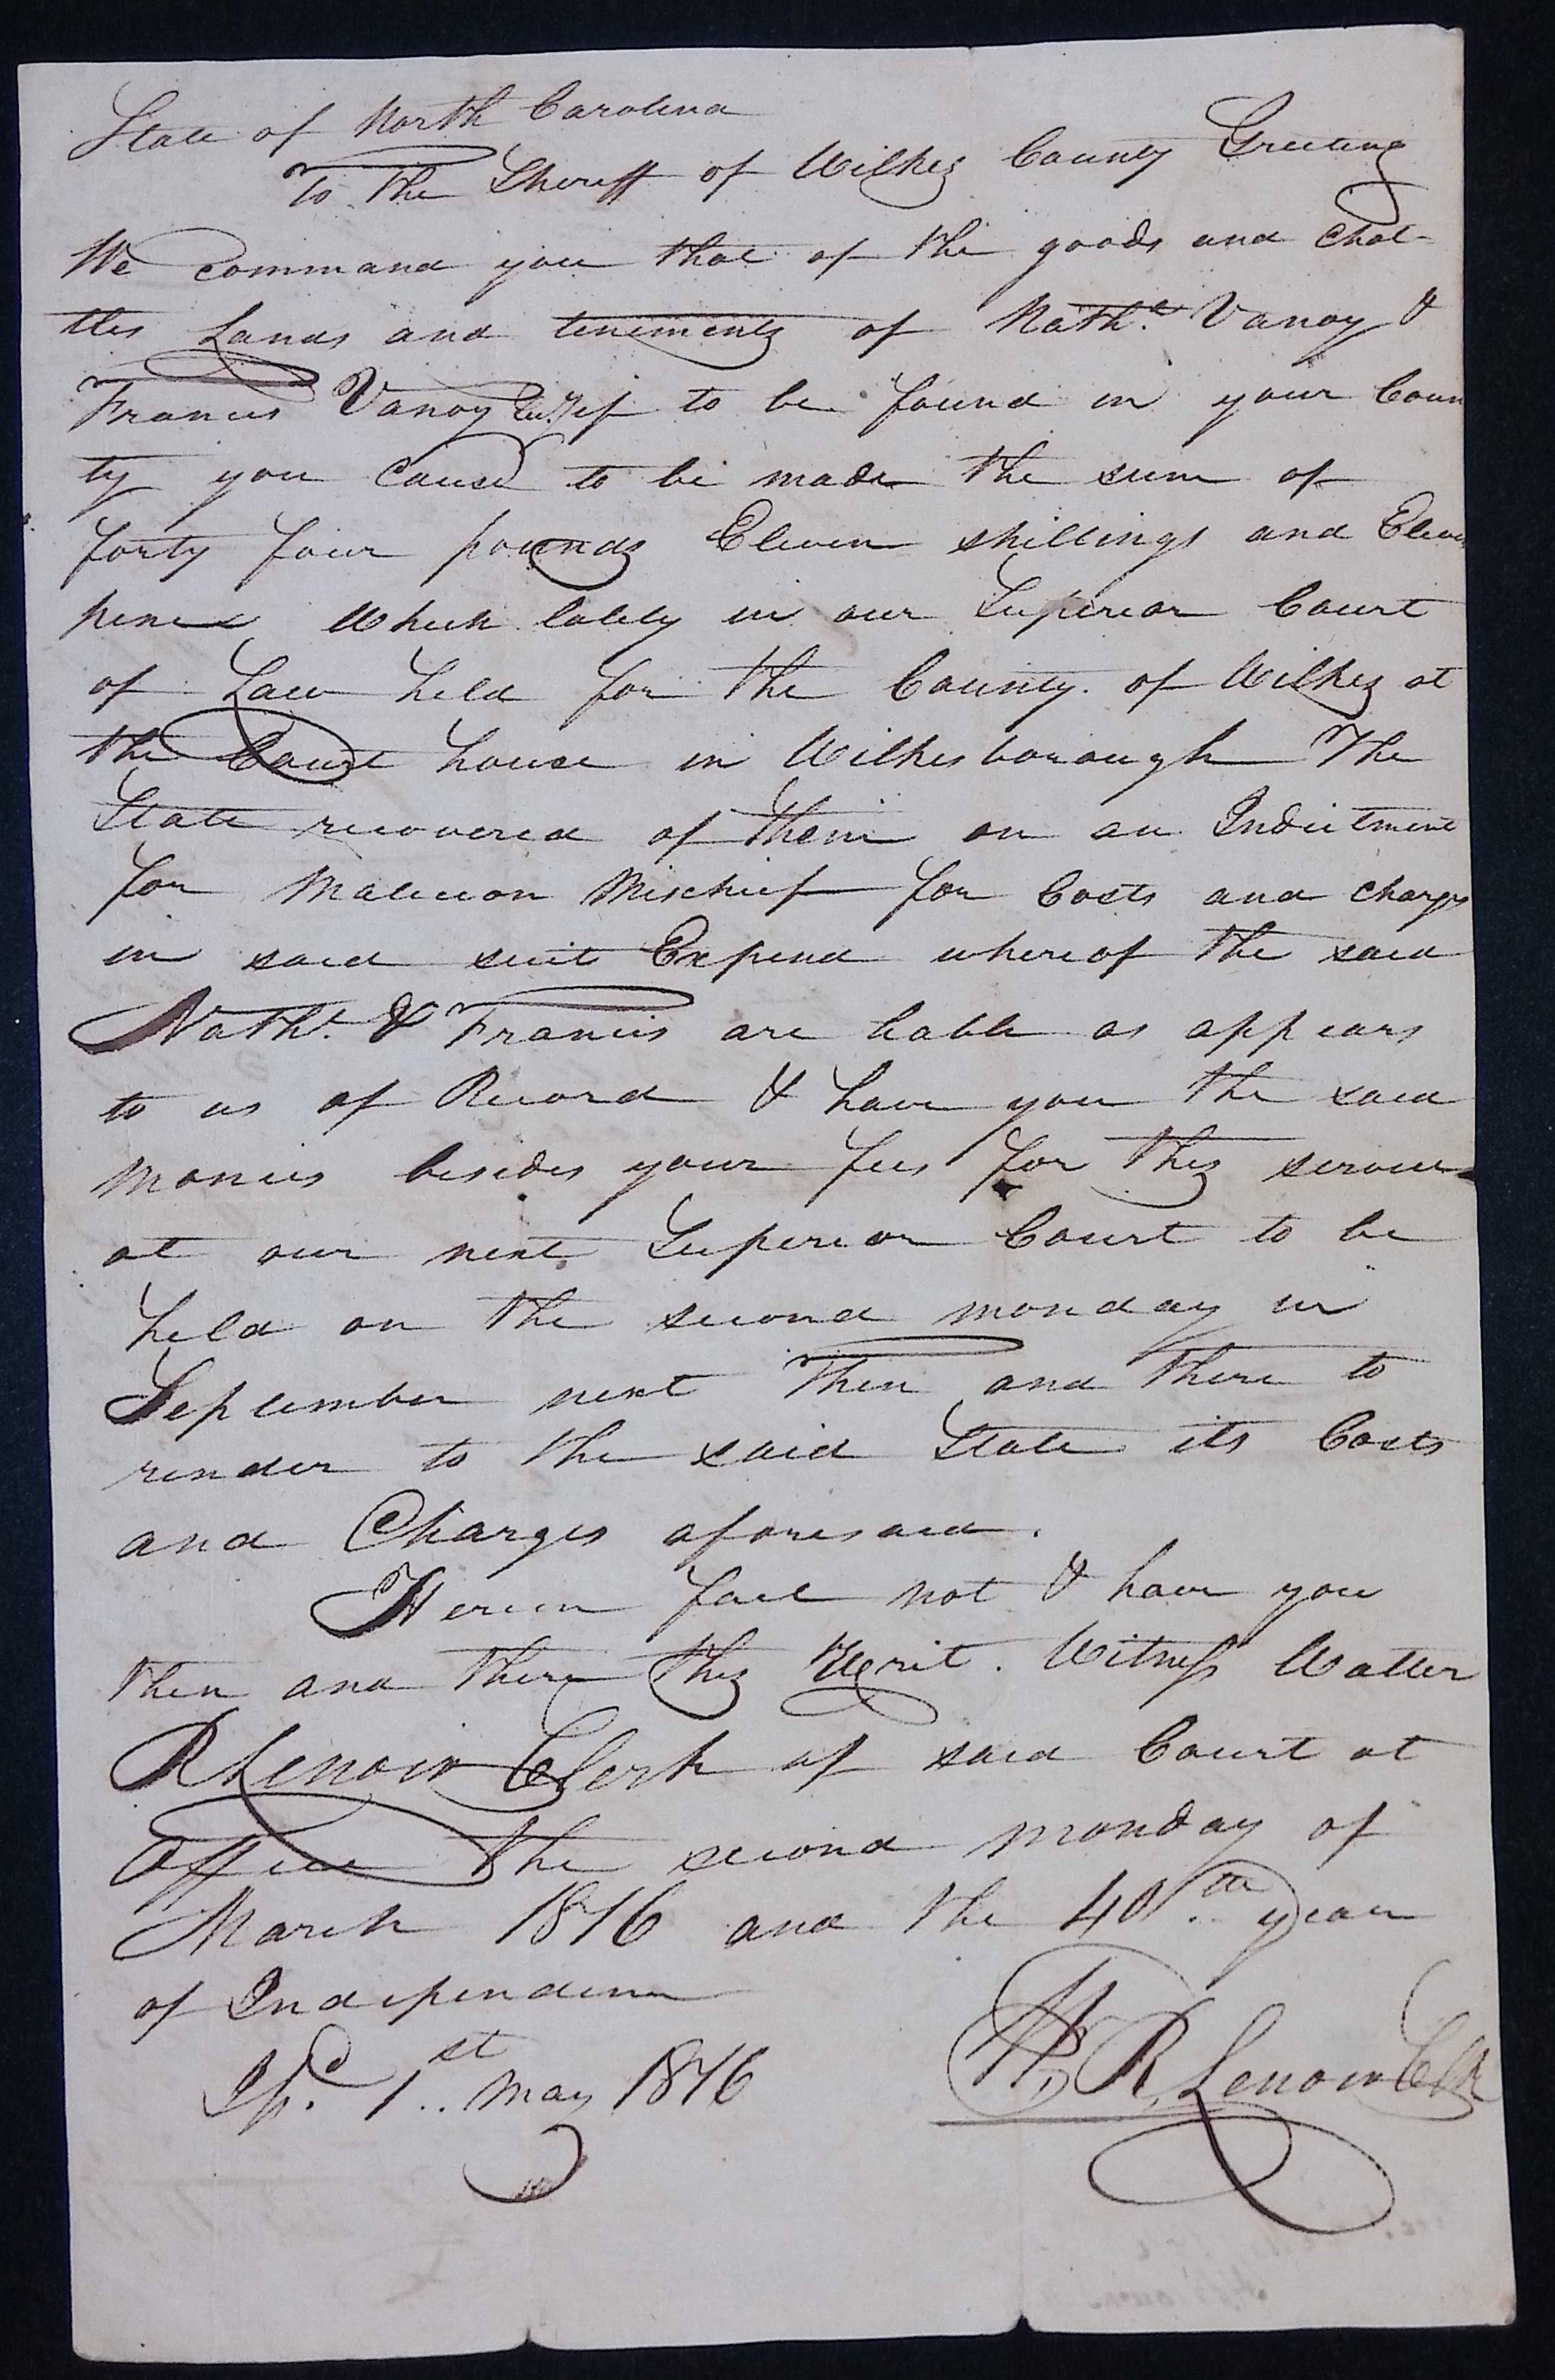 State of North Carolina
To the Sheriff of Wilkes County Greeting
We command you that of the goods and chat-
tles Lands and teniments of Nathl. Vanoy &
Francis Vanoy to be found in your Coun
ty you Cause to be made the sum of
forty four pounds Eleven shillings and Eleven
pence Which lately in our Superior Court
of Law held for the County of Wilkes at
the Court house in Wilkesborough The
State recovered of them on an Indictment
for Malicion Mischief for Costs and charges
in said suit Expend whereof the said
Nathl. & Francis are liable as appears
to us of Record & have you the said
monies besides your fees for this service
at our next Superior Court to be
held on the second monday in
September next Then and there to
render to the said State its Costs
and Charges aforesaid.
Herein fail not & have you
then and there this Writ. Witness Walter
R Lenoir Clerk of said Court at
Office the second monday of
March 1816 and the 40th year
of Independence
Isd. 1st May 1816
W. R. Lenoir Clk